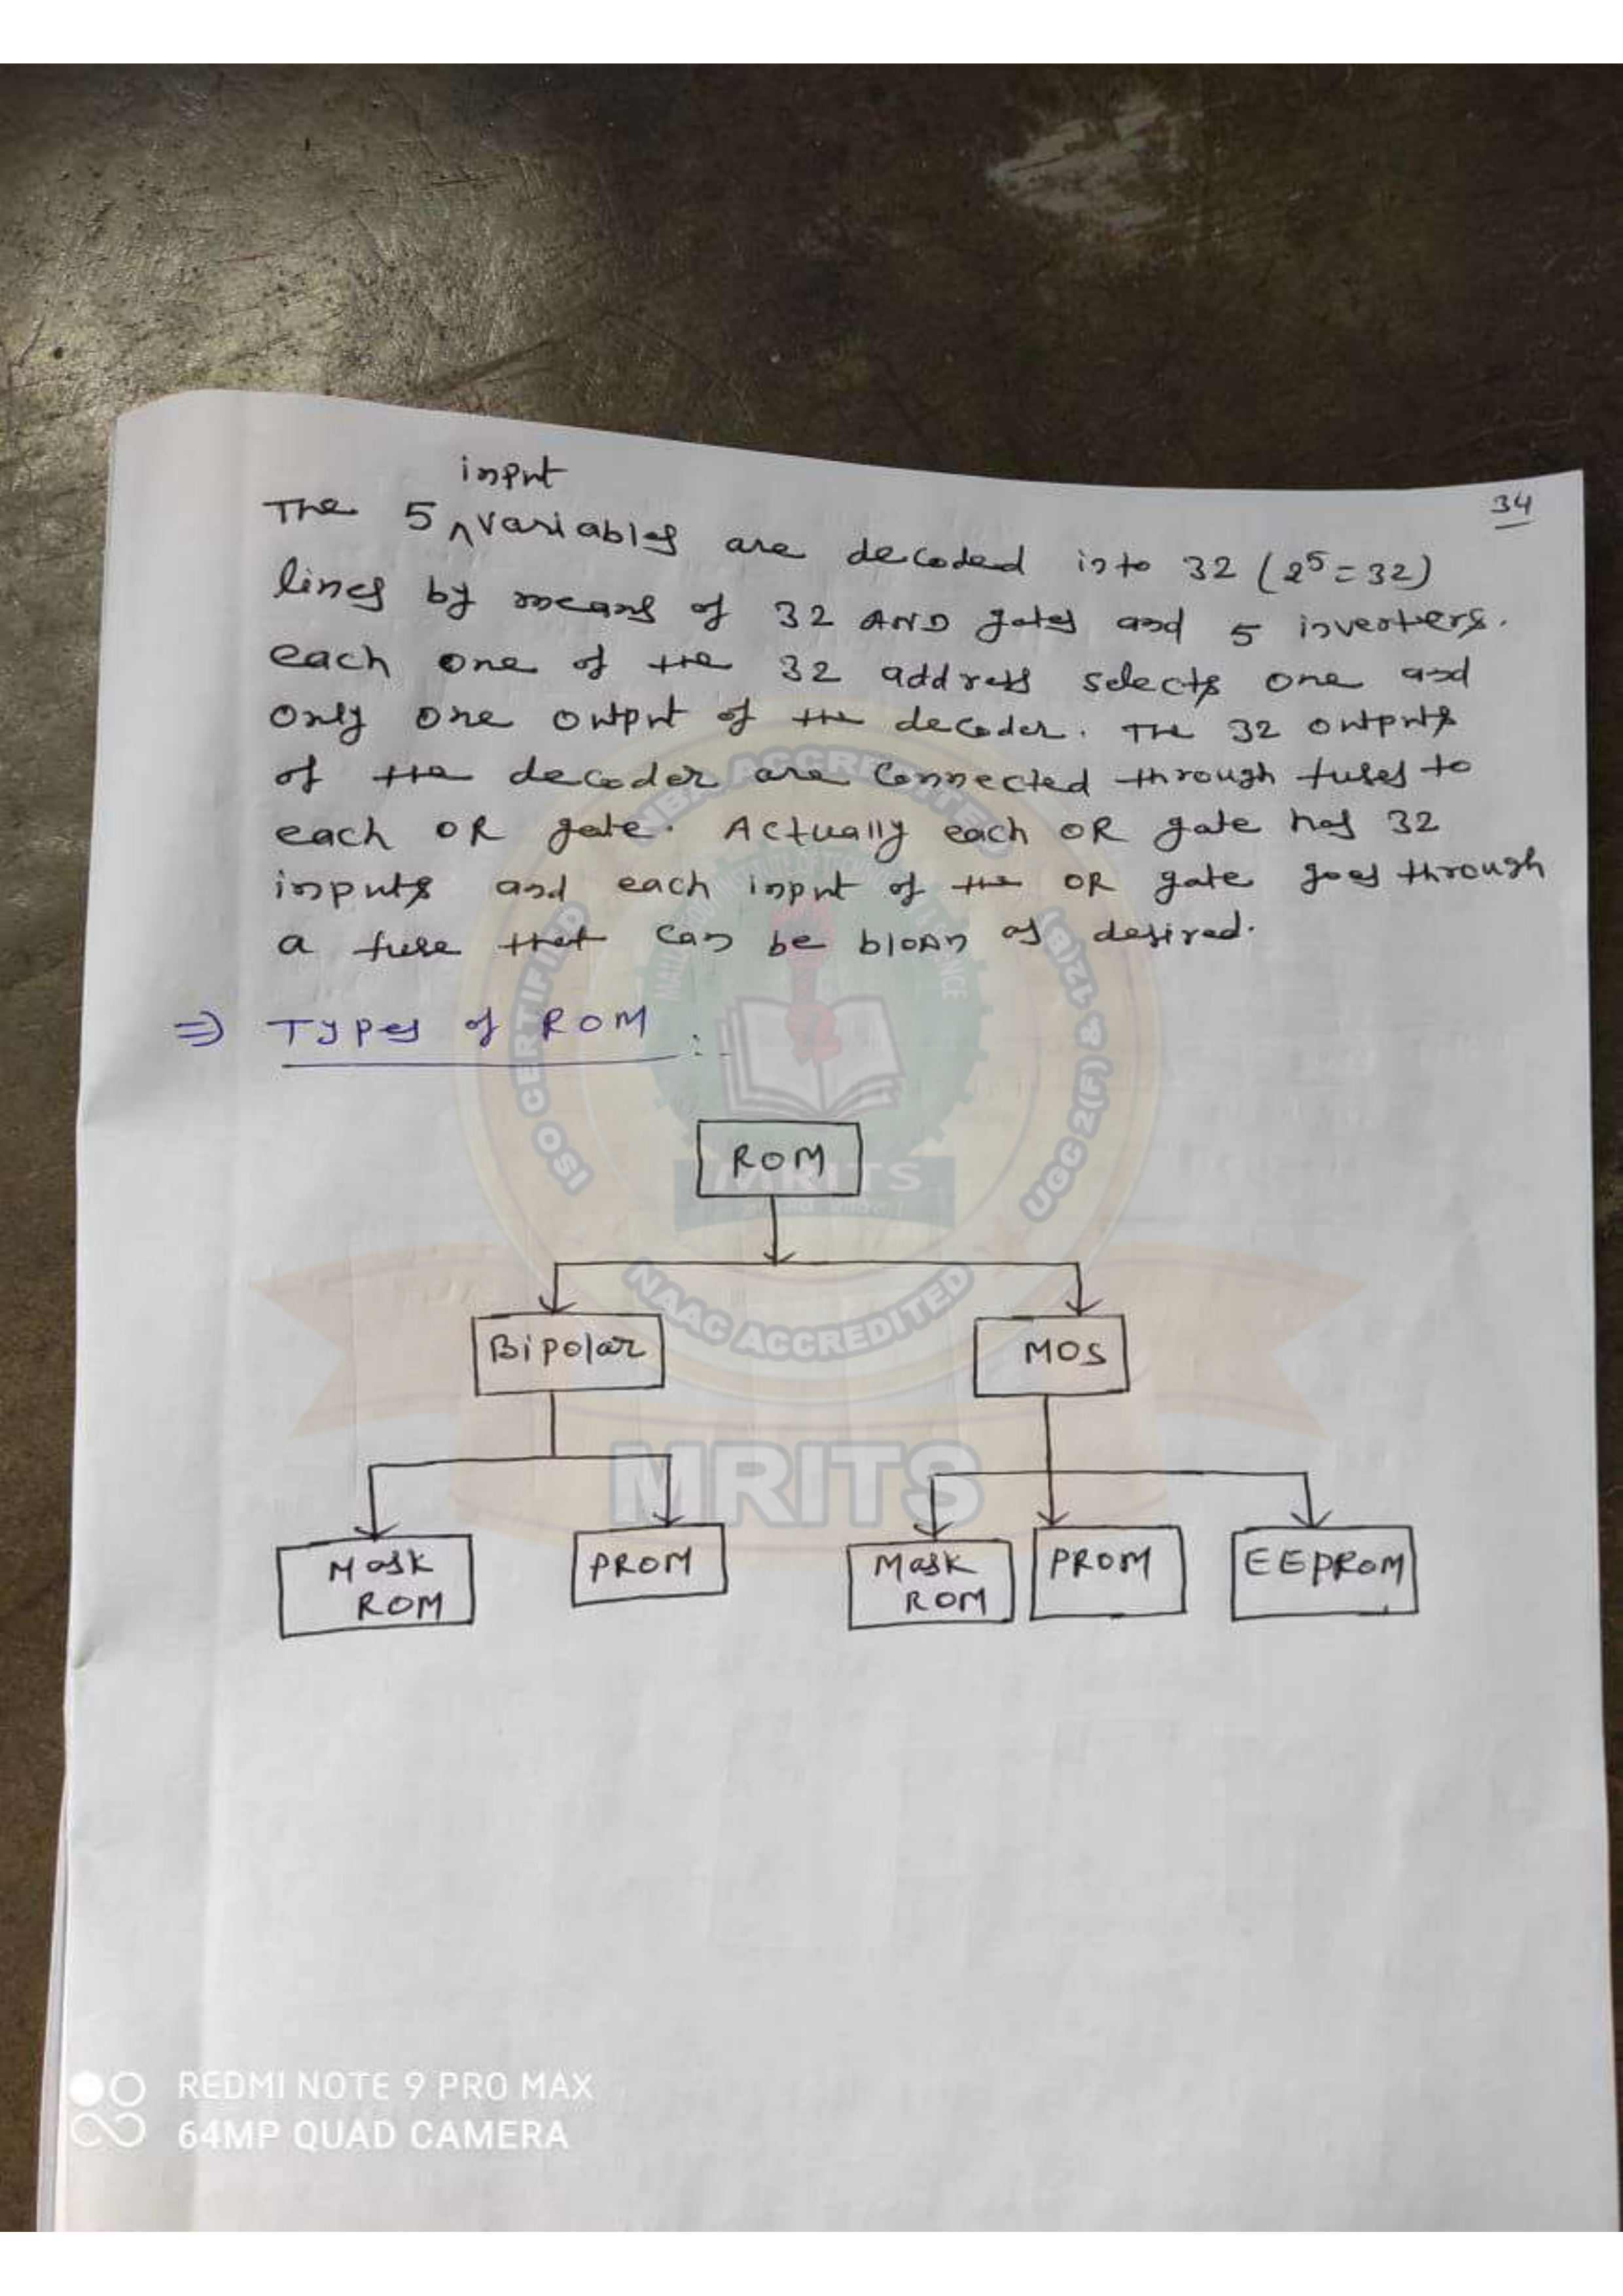 34
input
The 5 ^ variables are decoded into 32 (2⁵ = 32)
lines by means of 32 AND gates and 5 inverters.
each one of the 32 address selects one and
only one output of the decoder. The 32 outputs
of the decoder are connected through fuses to
each OR gate. Actually each OR gate has 32
inputs and each input of the OR gate goes through
a fuse that can be blown as desired.
⇒ Types of ROM :-
ROM
Bipolar
MOS
Mask
ROM
PROM
Mask
ROM
PROM
EEPROM
NBA ACCREDITED
ISO CERTIFIED
UGC 2(F) & 12(B)
NAAC ACCREDITED
MRITS
MRITS
REDMI NOTE 9 PRO MAX
64MP QUAD CAMERA